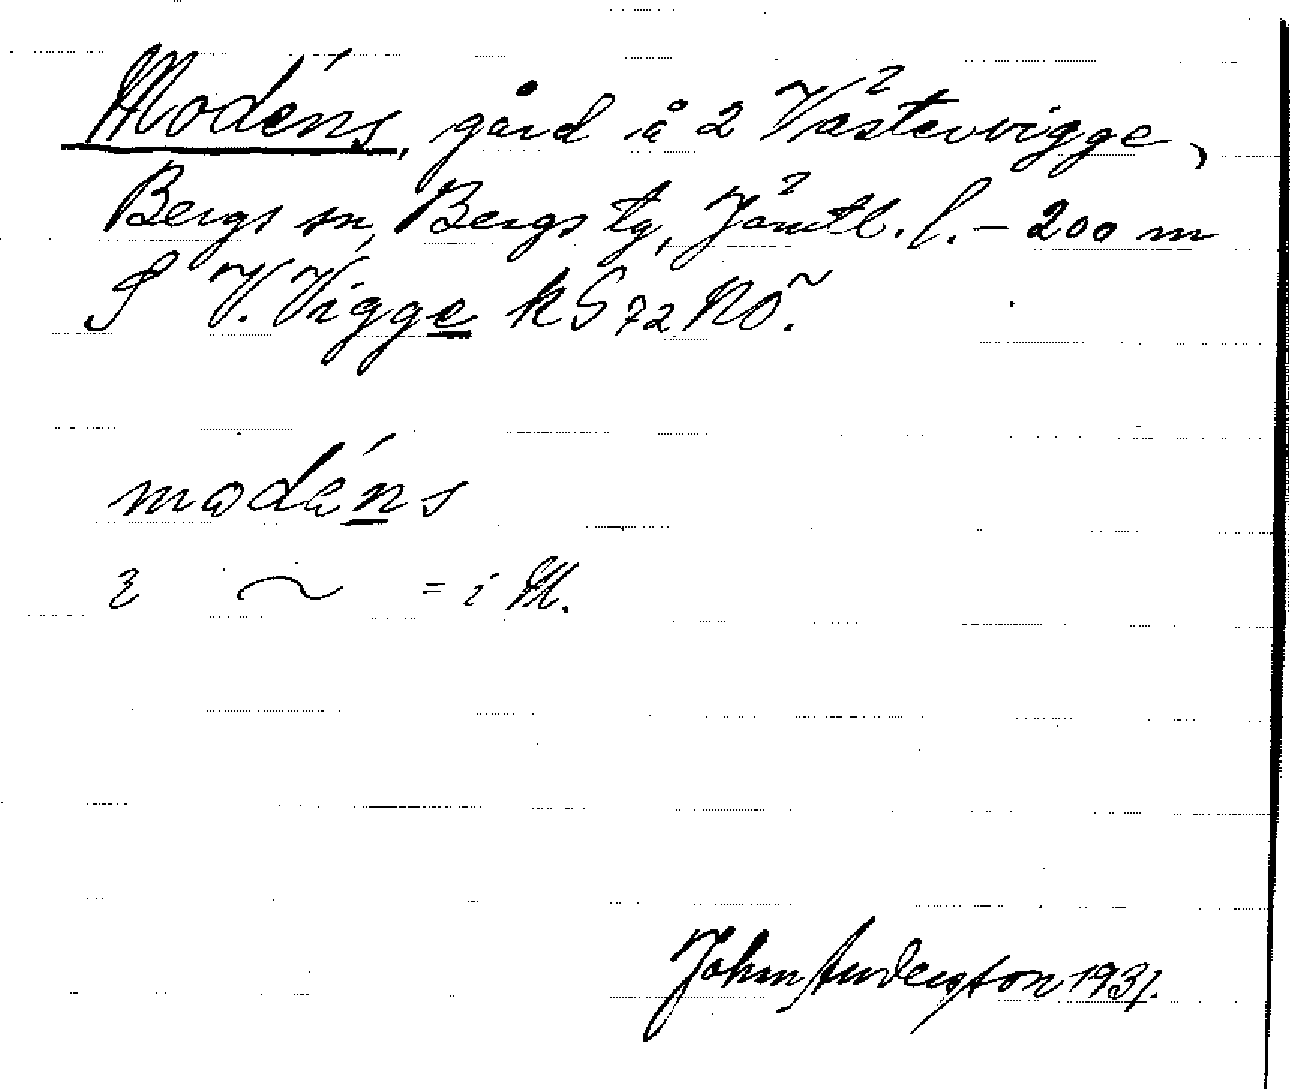 Modéns, gård å 2 Västervigge,
Bergs sn, Bergs tg, Jämtl. l. – 200 m
S V. Vigge k S 72 NO.
modéns
i ~ = i M.
John Anderson 1931.